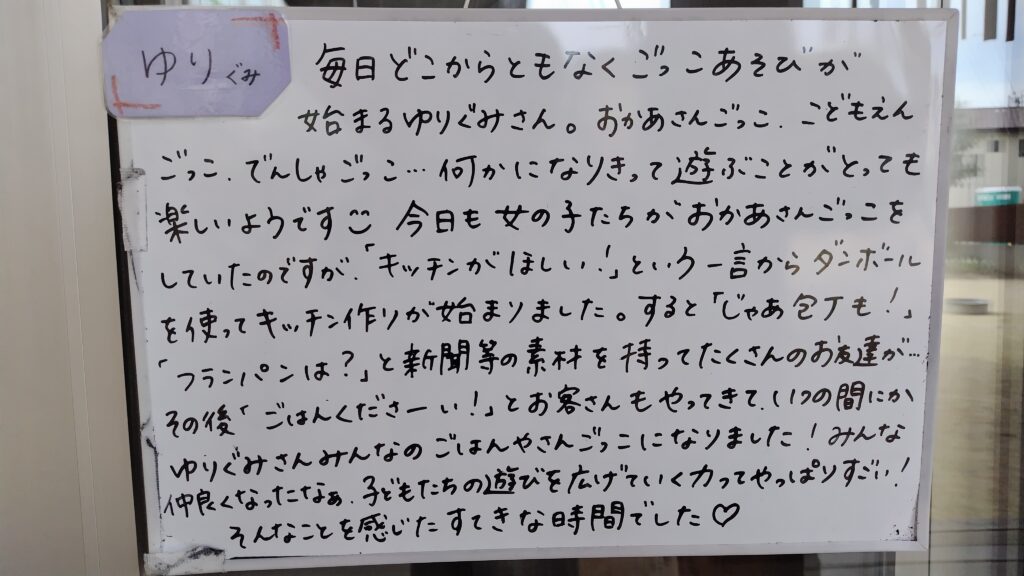 ゆりぐみ
毎日どこからともなくごっこあそびが
始まるゆりぐみさん。おかあさんごっこ、こどもえん
ごっこ、でんしゃごっこ…何かになりきって遊ぶことがとっても
楽しいようです 今日も女の子たちがおかあさんごっこを
していたのですが、「キッチンがほしい!」という一言からダンボール
を使ってキッチン作りが始まりました。すると「じゃあ包丁も!」
「フランパンは?」と新聞等の素材を持ってたくさんのお友達が…
その後「ごはんくださーい!」とお客さんもやってきて、いつの間にか
ゆりぐみさんみんなのごはんやさんごっこになりました!みんな
仲良くなったなぁ、子どもたちの遊びを広げていく力ってやっぱりすごい!
そんなことを感じたすてきな時間でした♡